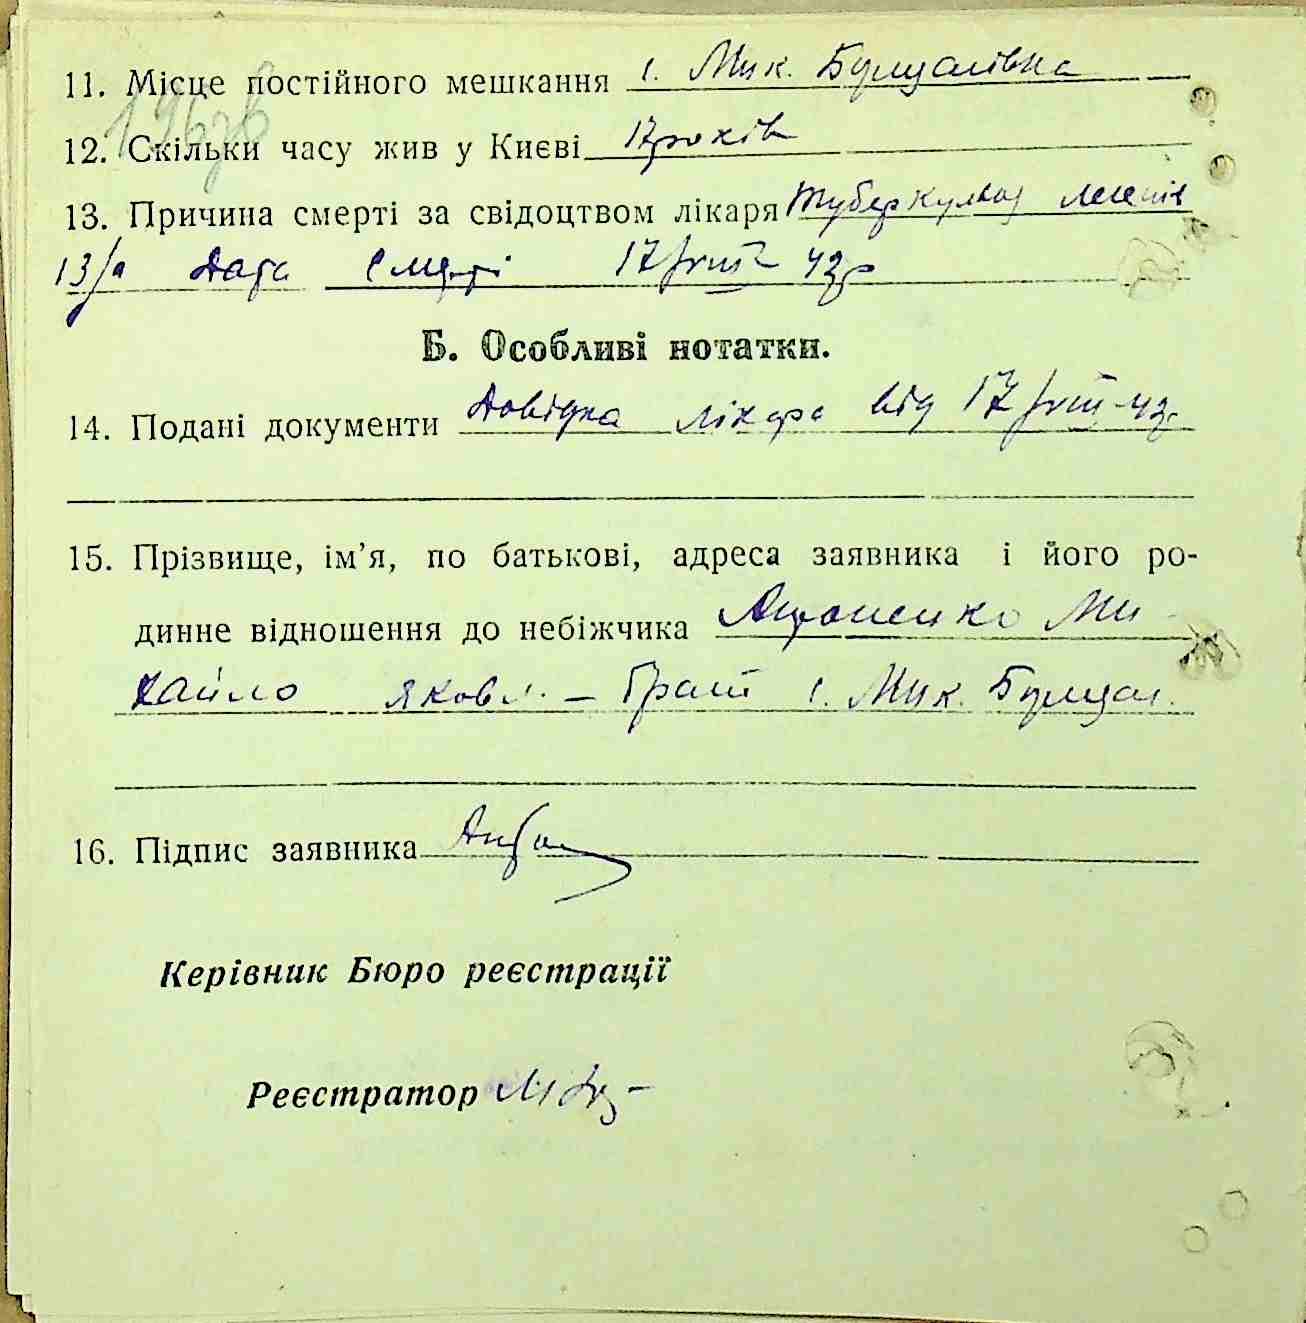 11. Місце постійного мешкання с. Мик. Борщагівка
12. Скільки часу жив у Києві 17 років
13. Причина смерті за свідоцтвом лікаря туберкульоз легенів
13/а Дата смерті 17/VIII 42 р
Б. Особливі нотатки.
14. Подані документи Довідка лікаря від 17/VIII-42р.
15. Прізвище, ім’я, по батькові, адреса заявника і його ро-
динне відношення до небіжчика Ми-
хайло Яковл. – брат с. Мик. Борщаг.
16. Підпис заявника
Керівник Бюро реєстрації
Реєстратор